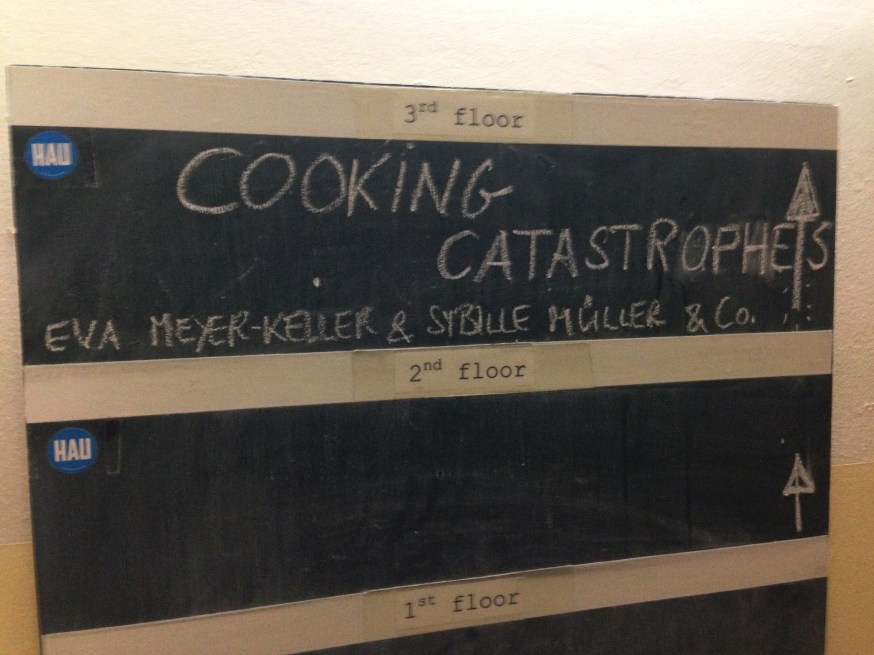 3rd floor
HAU
COOKING
CATASTROPHES
EVA MEYER-KELLER & SYBILLE MÜLLER & Co.
2nd floor
HAU
1st floor